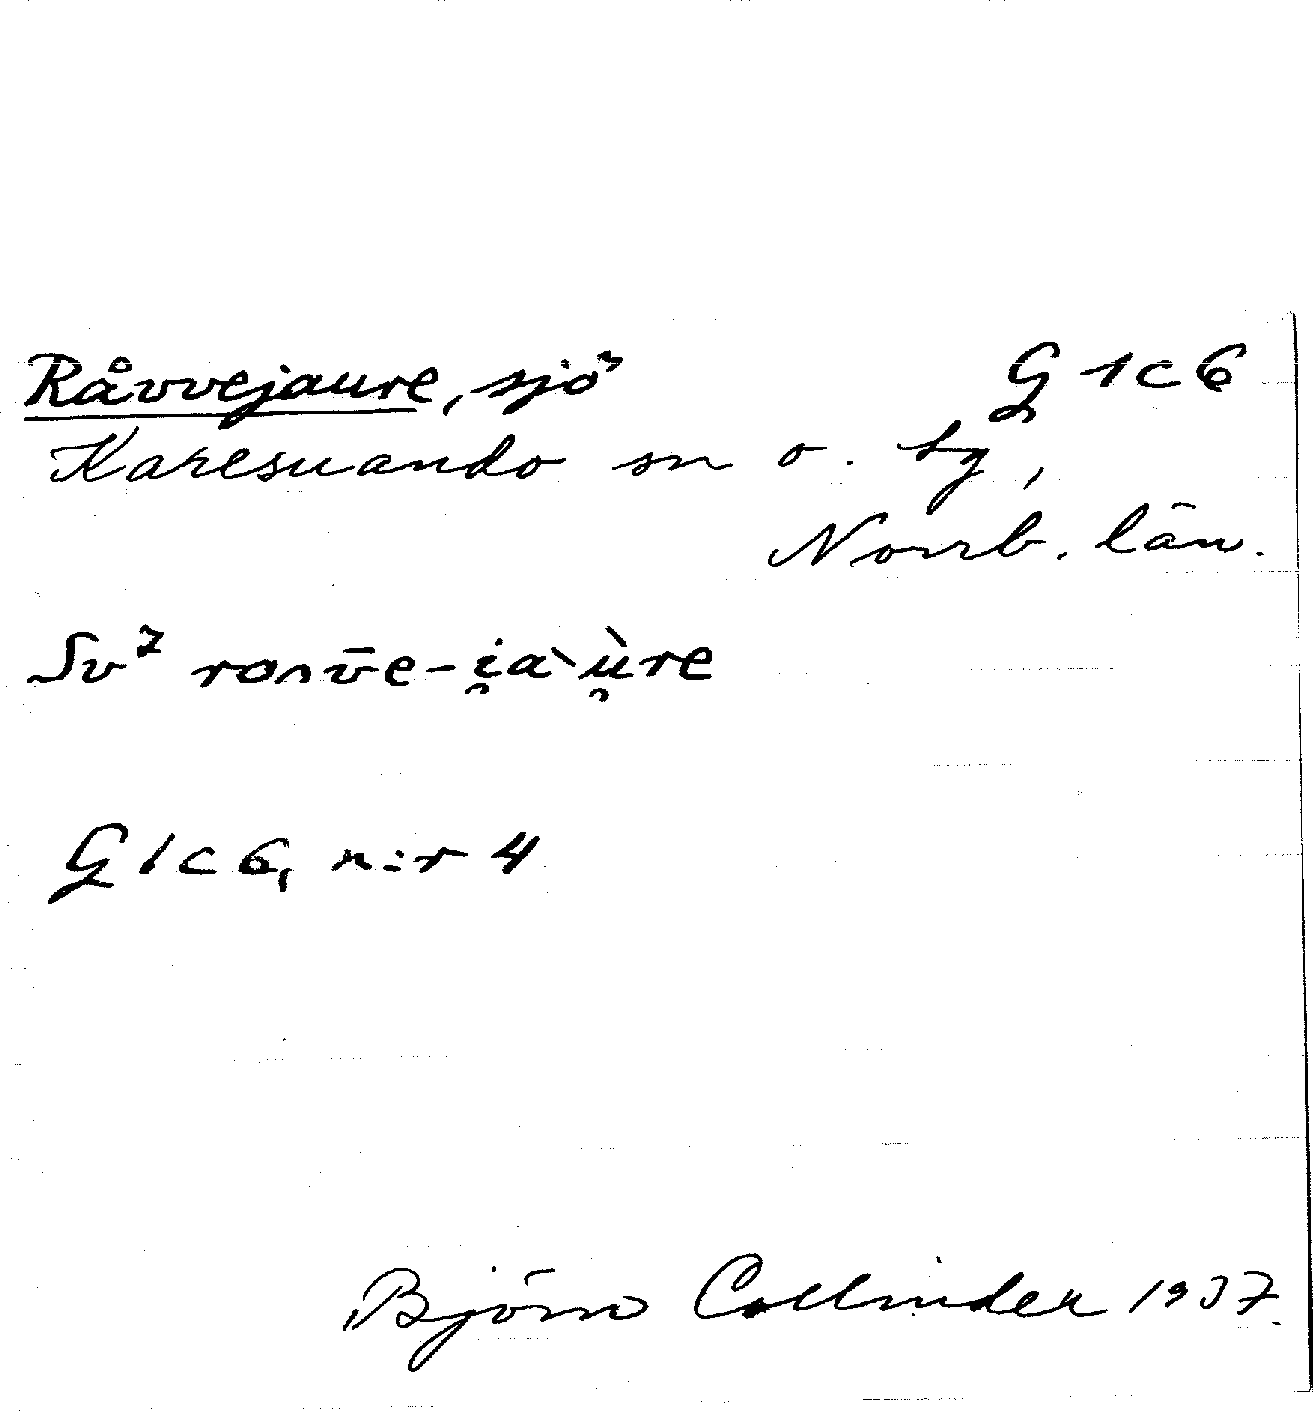 Råvvejaure, sjö G 1 c 6
Karesuando sn o. tg,
Norrb. län.
Sv² roʌv̄e-i̯a`ù̯re
G 1 c 6, n:r 4
Björn Collinder 1937.